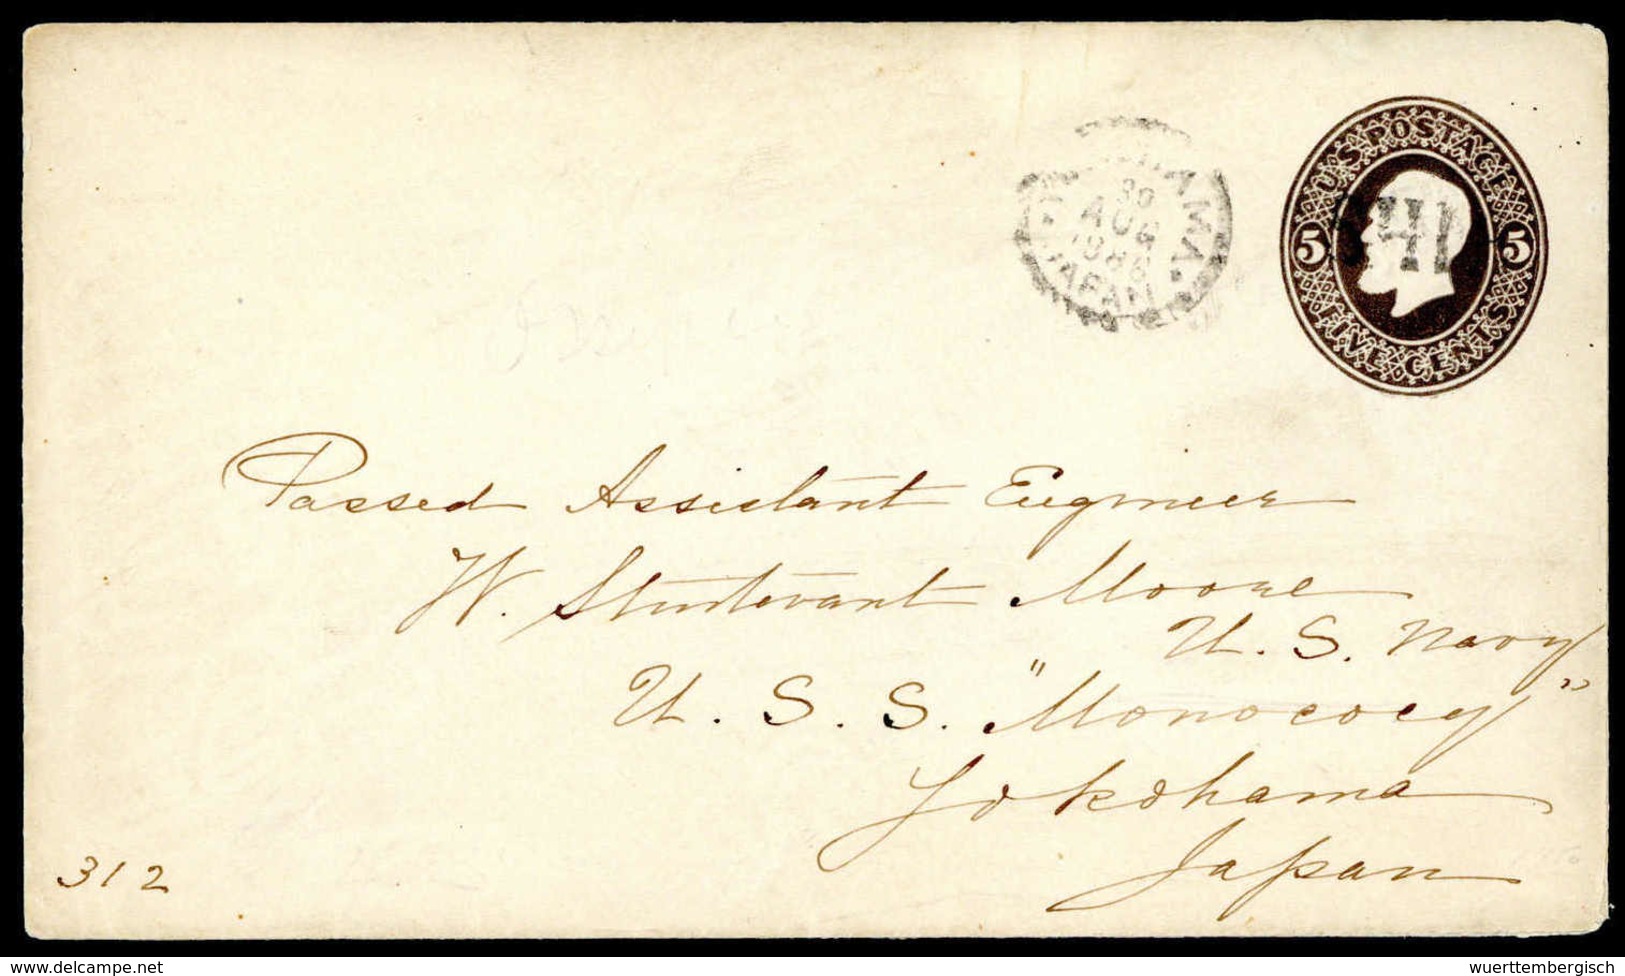 U.S. POSTAGE
5 5
FIVE CENTS
YOKOHAMA
AUG
JAPAN
Passed Assistant Engineer
W. Sturtevant Moore
U. S. Navy
U. S. S. "Monococy"
Yokohama
Japan
312
www.delcampe.net
wuerttembergisch